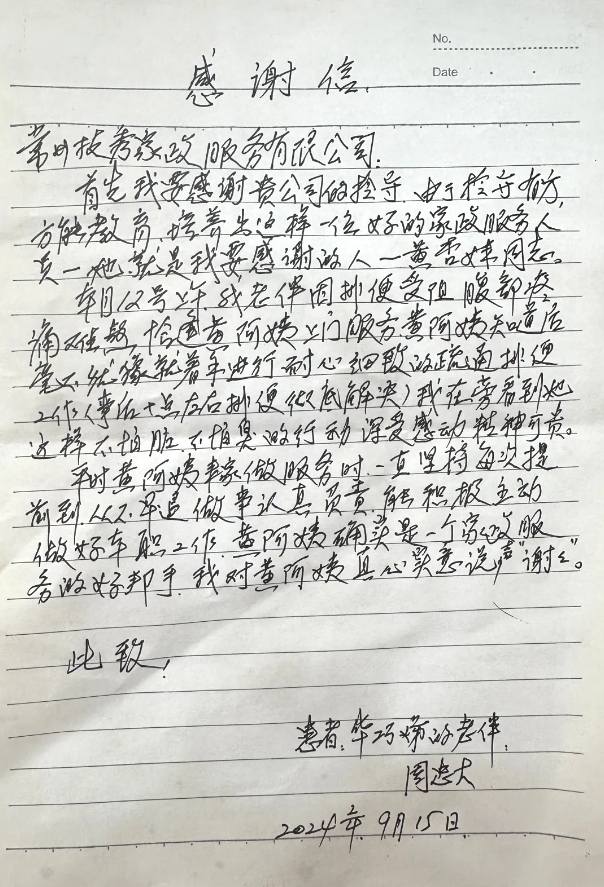 No.
Date
感谢信.
常州技秀家政服务有限公司:
首先我要感谢贵公司的领导.由于领导有方,
方能教育,培养出这样一位好的家政服务人
员—她就是我要感谢的人—黄杏妹同志。
本月12号上午我老伴因排便受阻腹部疼
痛难熬,恰逢黄阿姨上门服务黄阿姨知道后
毫不犹豫就着手进行耐心细致的疏通排便
工作(事后十点左右排便彻底解决)我在旁看到她
这样不怕脏不怕臭的行动深受感动精神可贵。
平时黄阿姨来家做服务时,一直坚持每次提
前到,从不早退做事认真负责,能积极主动
做好本职工作,黄阿姨确实是一个家政服
务的好帮手,我对黄阿姨真心实意说声"谢谢"。
此致,
患者:华巧娣的老伴,
周忠大
2024年9月15日